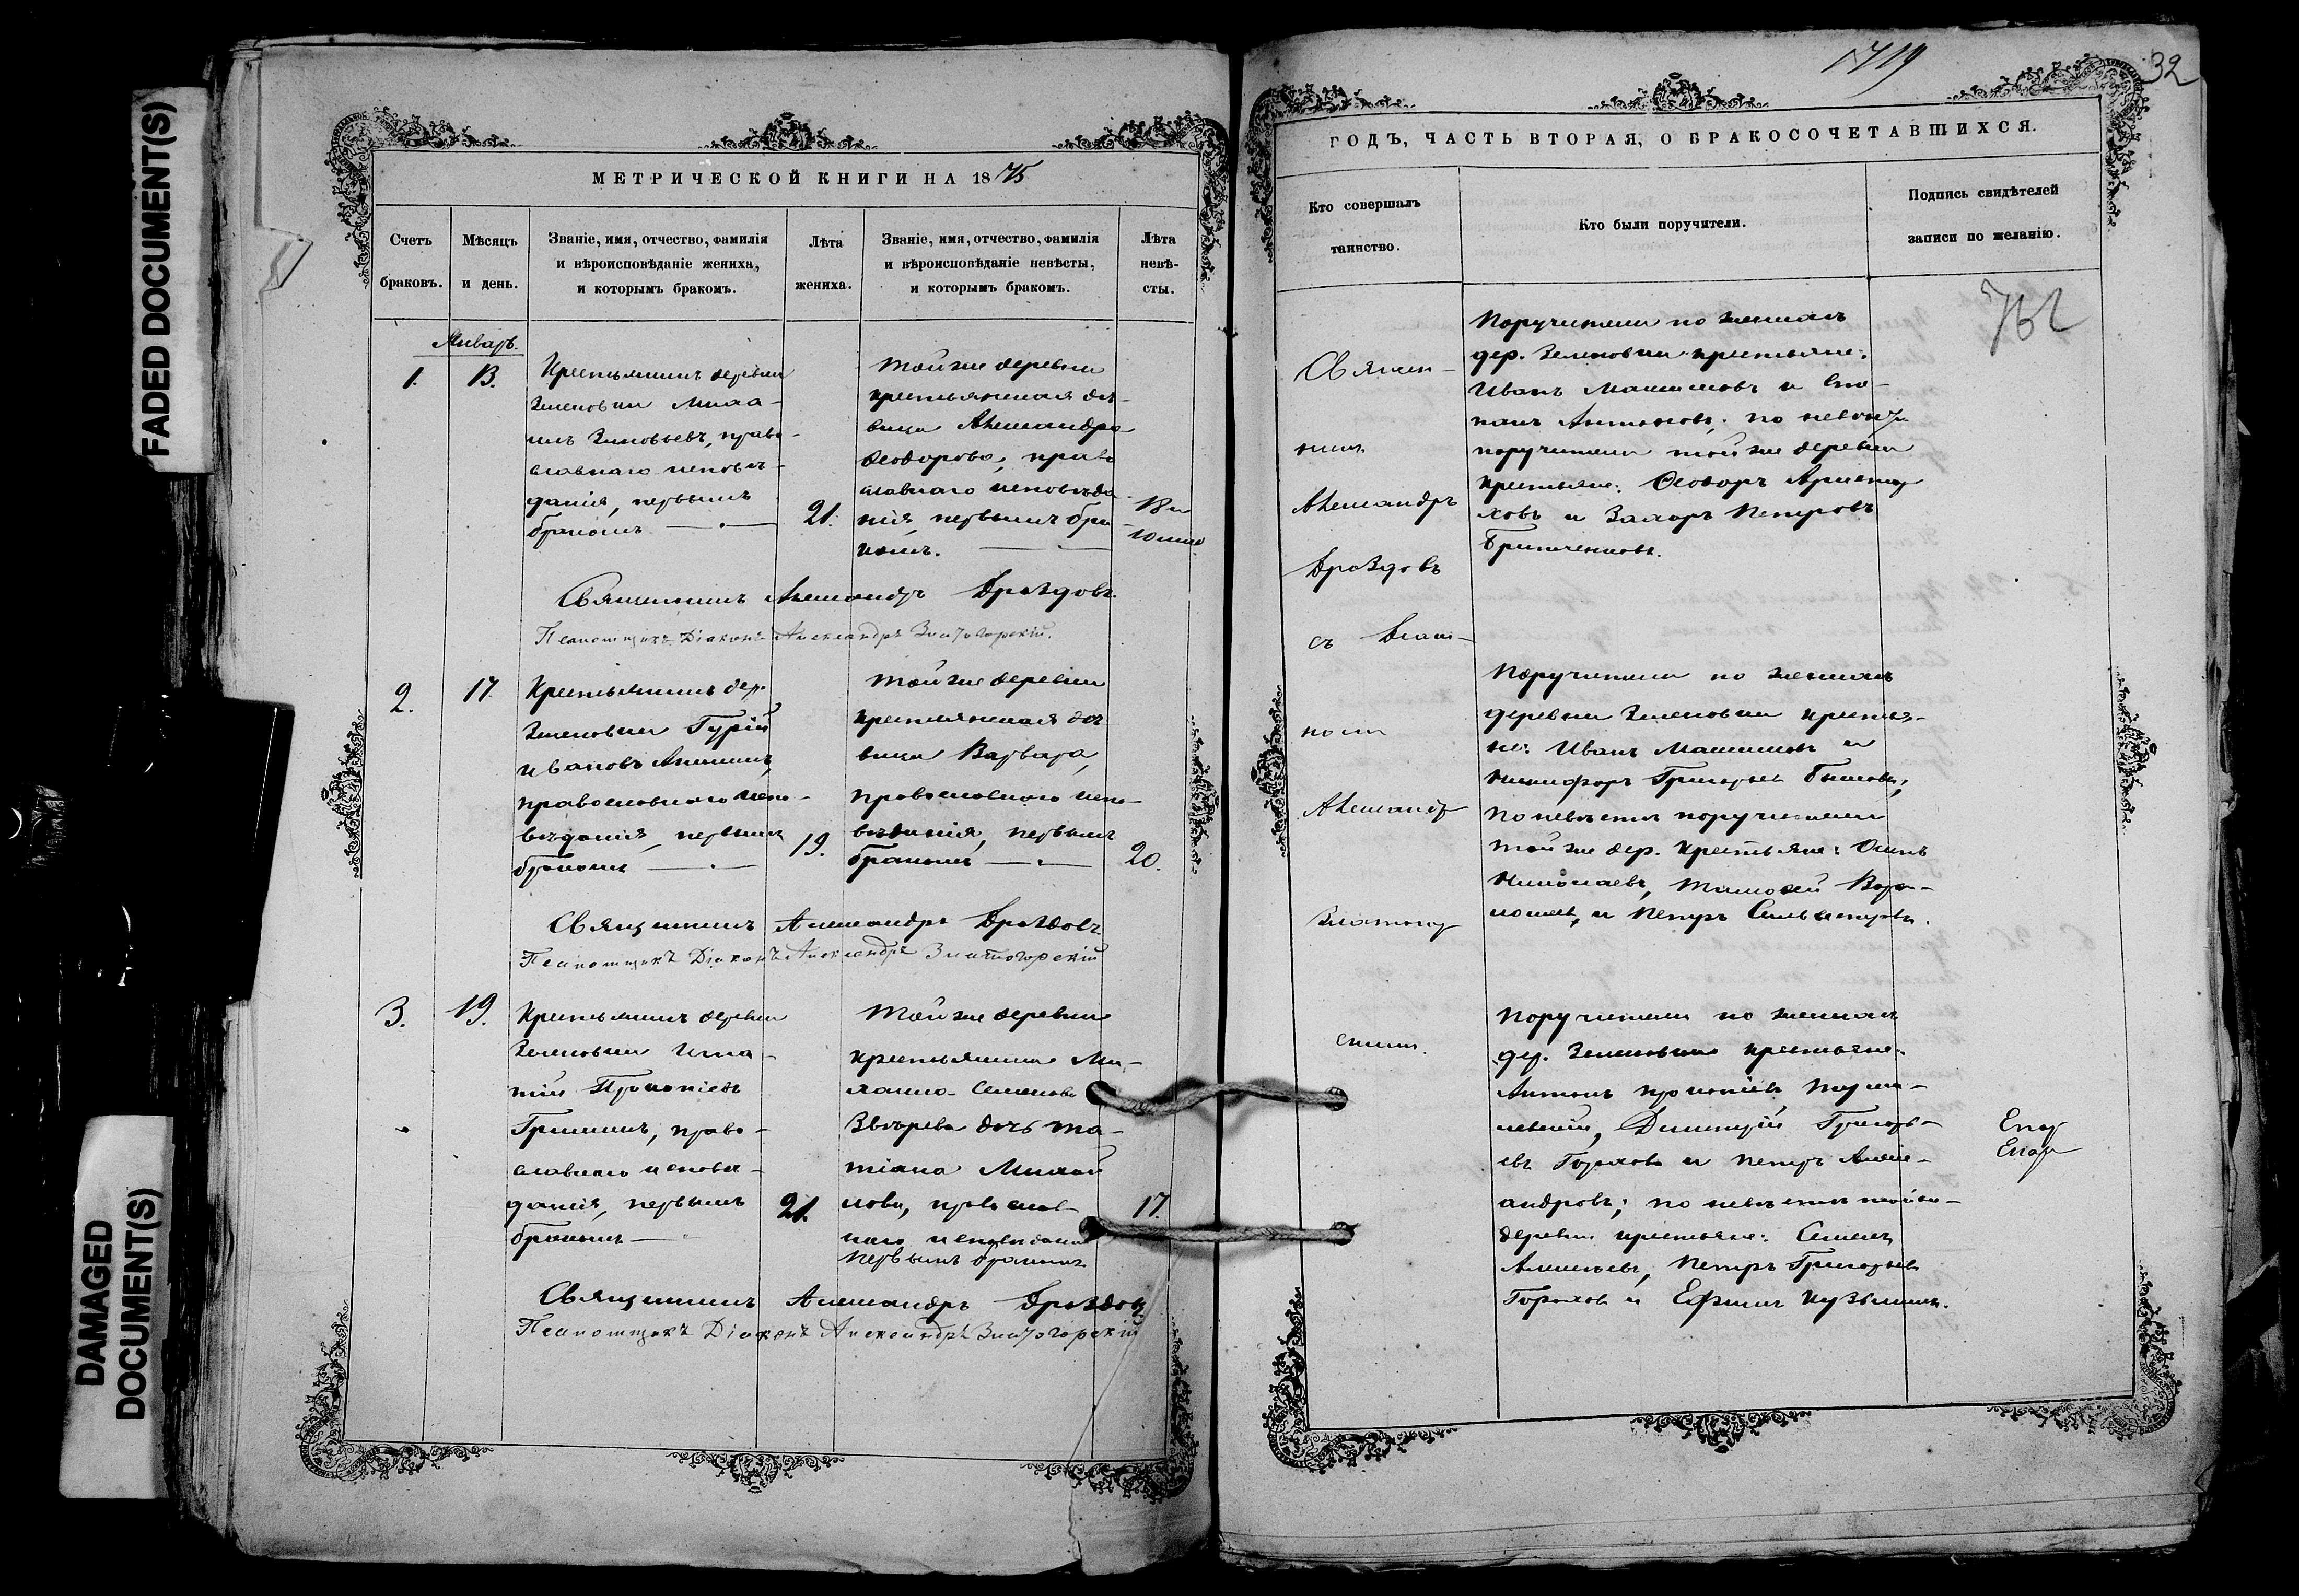 FADED DOCUMENT(S)
DAMAGED
DOCUMENT(S)
МЕТРИЧЕСКОЙ КНИГИ НА 1875
Счетъ
браковъ.
Мѣсяцъ
и день.
Званіе, имя, отчество, фамилія
и вѣроисповѣданіе жениха,
и которымъ бракомъ.
Лѣта
жениха.
Званіе, имя, отчество, фамилія
и вѣроисповѣданіе невѣсты,
и которымъ бракомъ.
Лѣта
невѣ-
сты.
Январь.
1.
13.
Крестьянинъ деревни
Зеленовки Миха-
илъ Зиновьевъ, право-
славнаго исповѣ-
данія, первымъ
бракомъ
21.
Той же деревни
крестьянская дѣ-
вица Александра
Ѳеодорова, право
славнаго исповѣда
нія, первымъ бра-
комъ.
Священникъ Александръ Дроздовъ.
Псаломщикъ Діаконъ Александръ Златогорскій.
2.
17.
Крестьянинъ дер.
Зеленовки Гурій
Ивановъ Аникинъ,
православнаго испо-
вѣданія, первымъ
бракомъ
19.
Той же деревни
крестьянская дѣ
вица Варвара,
православнаго испо-
вѣданія, первымъ
бракомъ
20.
Священникъ Александръ Дроздовъ.
Псаломщикъ Діаконъ Александръ Златогорскій
3.
19.
Крестьянинъ деревни
Зеленовки Игна-
тій Прокопіевъ
Гришинъ, право-
славнаго исповѣ-
данія, первымъ
бракомъ
21.
Той же деревни
крестьянина Ми-
хаила Семенова
Звѣрева дочь Та-
тіана Михай
лова, православ-
наго исповѣданія
первымъ бракомъ
17.
Священникъ Александръ Дроздовъ
Псаломщикъ Діаконъ Александръ Златогорскій
1719
32
ГОДЪ, ЧАСТЬ ВТОРАЯ, О БРАКОСОЧЕТАВШИХСЯ.
Кто совершалъ
таинство.
Кто были поручители.
Подпись свидѣтелей
записи по желанію.
Священ-
никъ
Александръ
Дроздовъ
съ Діако-
номъ
Александр
Златогор
скимъ.
Поручители по женихѣ
дер. Зеленовки крестьяне:
Иванъ Максимовъ и Сте-
панъ Антоновъ; по невѣстѣ
поручители той же деревни
крестьяне: Ѳеодоръ
и Захаръ Петровъ
Поручители по женихѣ
деревни Зеленовки крестья-
не: Иванъ Максимовъ и
Никифоръ Григорьевъ Быковъ;
по невѣстѣ поручители
той же дер. крестьяне: Осипъ
Николаевъ, Тимоѳей
и Петръ Сильвестровъ.
Поручители по женихѣ
дер. Зеленовки крестьяне:
Антонъ Прокопіевъ
Димитрій Григорь-
евъ Гороховъ и Петръ Алекс-
андровъ; по невѣстѣ той же
деревни крестьяне: Семенъ
Алексѣевъ, Петръ Григорьевъ
Гороховъ и Ефимъ Кузьминъ.